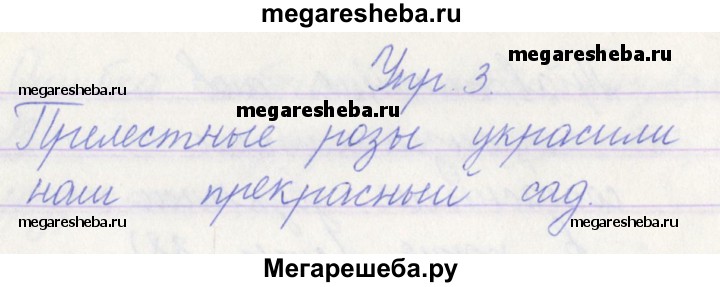 megaresheba.ru
Упр. 3.
megaresheba.ru
megaresheba.ru
megaresheba.ru
Прелестные розы украсили
наш прекрасный сад.
megaresheba.ru
megaresheba.ru
Мегарешеба.ру